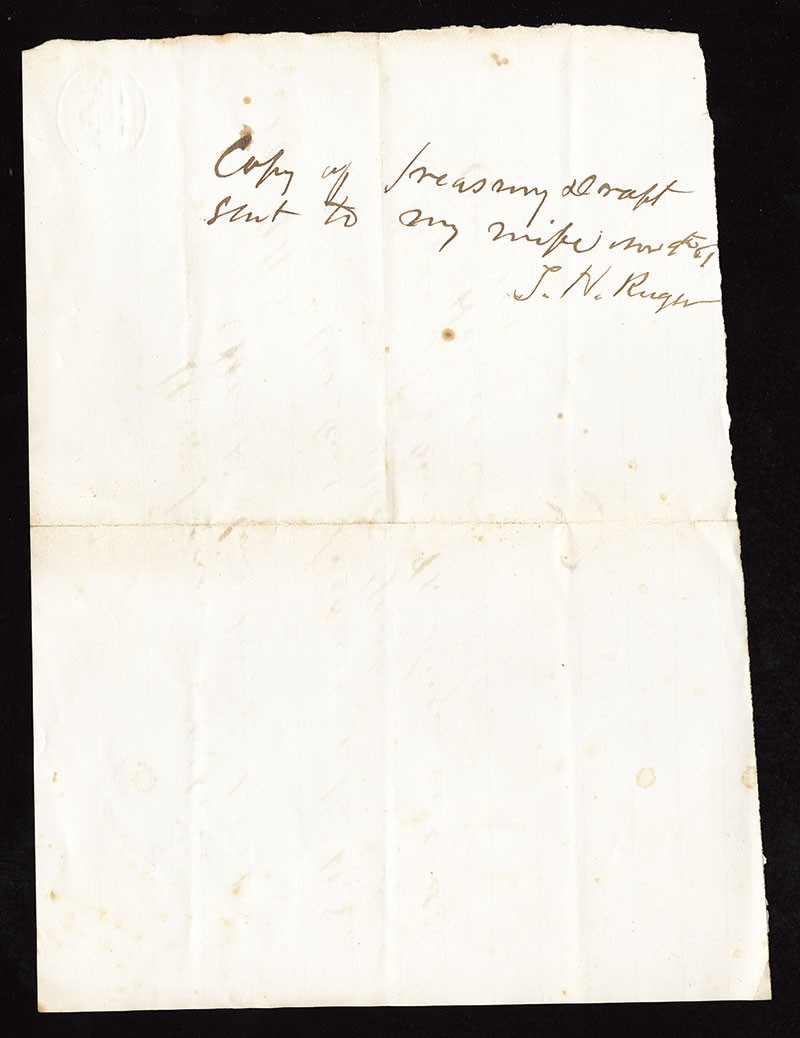 Copy of Treasury Draft
sent to my wife Nov 9th 61
T. H. Ruger